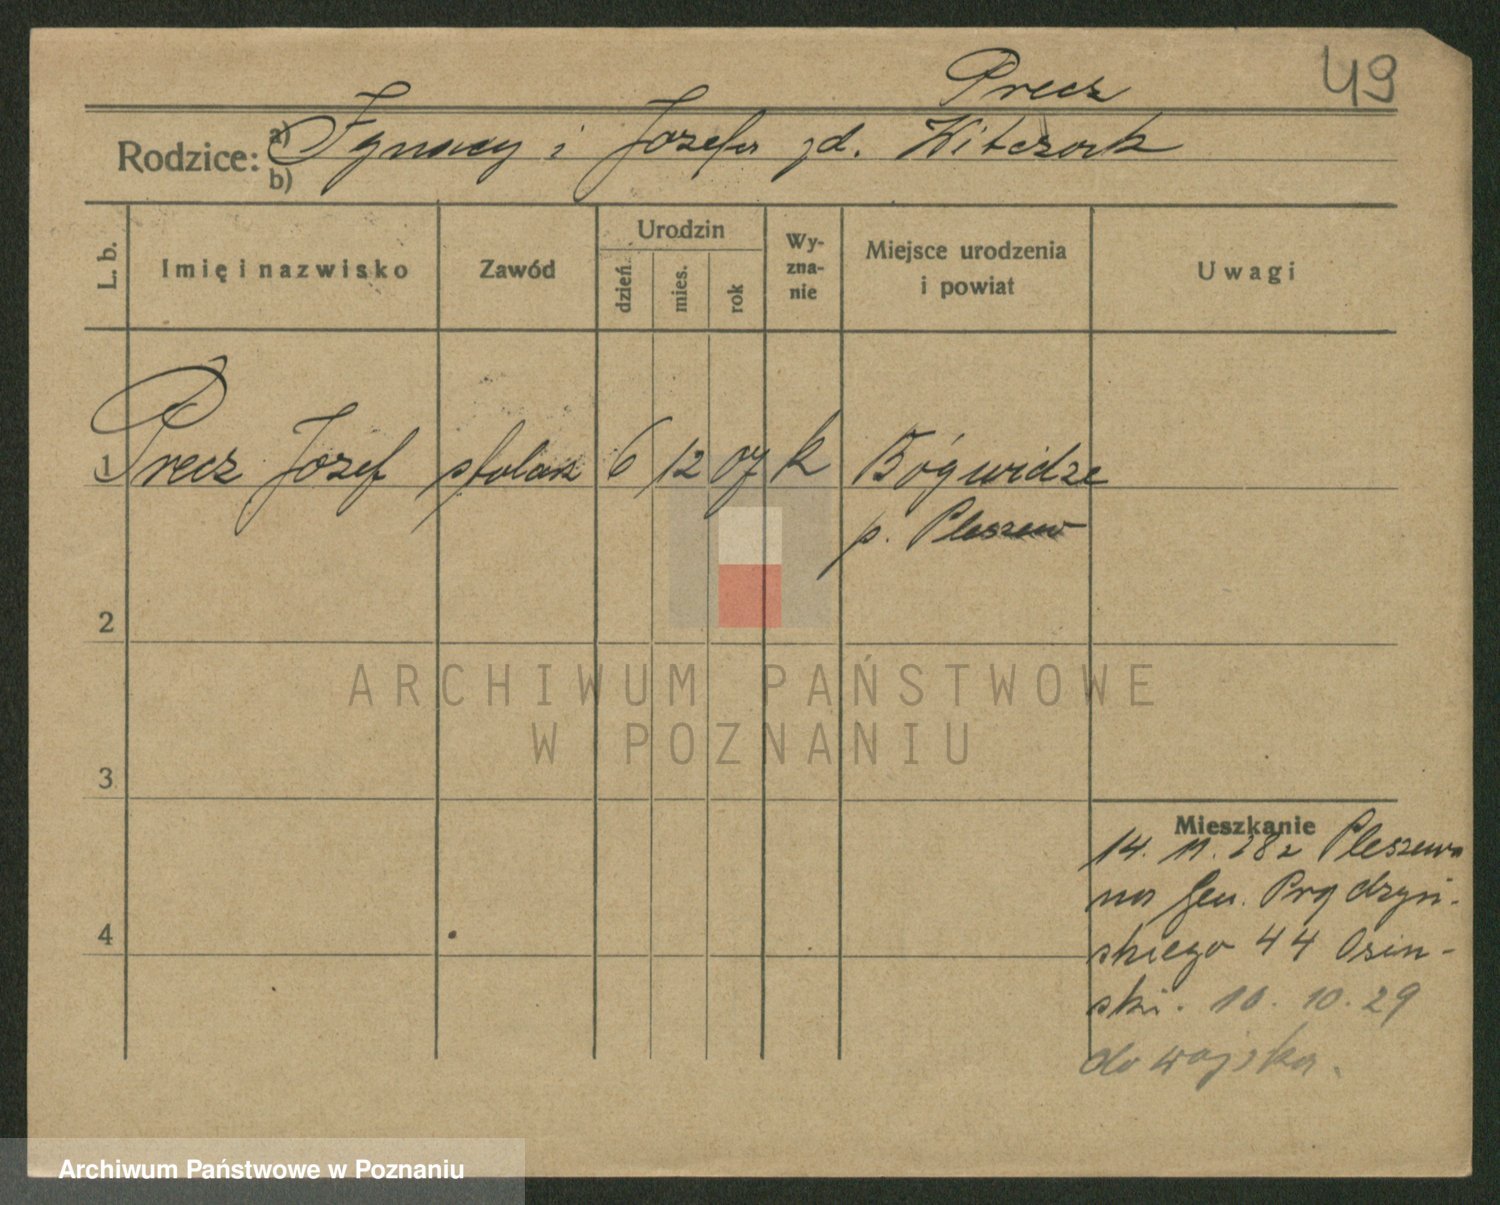 49
Precz
Rodzice: a) Ignacy i Józefa zd. Witczack
b)
L. b. Imię i nazwisko Zawód Urodzin dzień mies. rok Wyznanie Miejsce urodzenia i powiat Uwagi
1 Precz Józef stolarz 6 12 07 k Bógwidze
p. Pleszew
2
3
4
Mieszkanie
14. 11. 28 z Pleszewa
na Gen. Prądzyń-
skiego 44 Osin-
ski. 10. 10. 29
do wojska.
ARCHIWUM PAŃSTWOWE
W POZNANIU
Archiwum Państwowe w Poznaniu